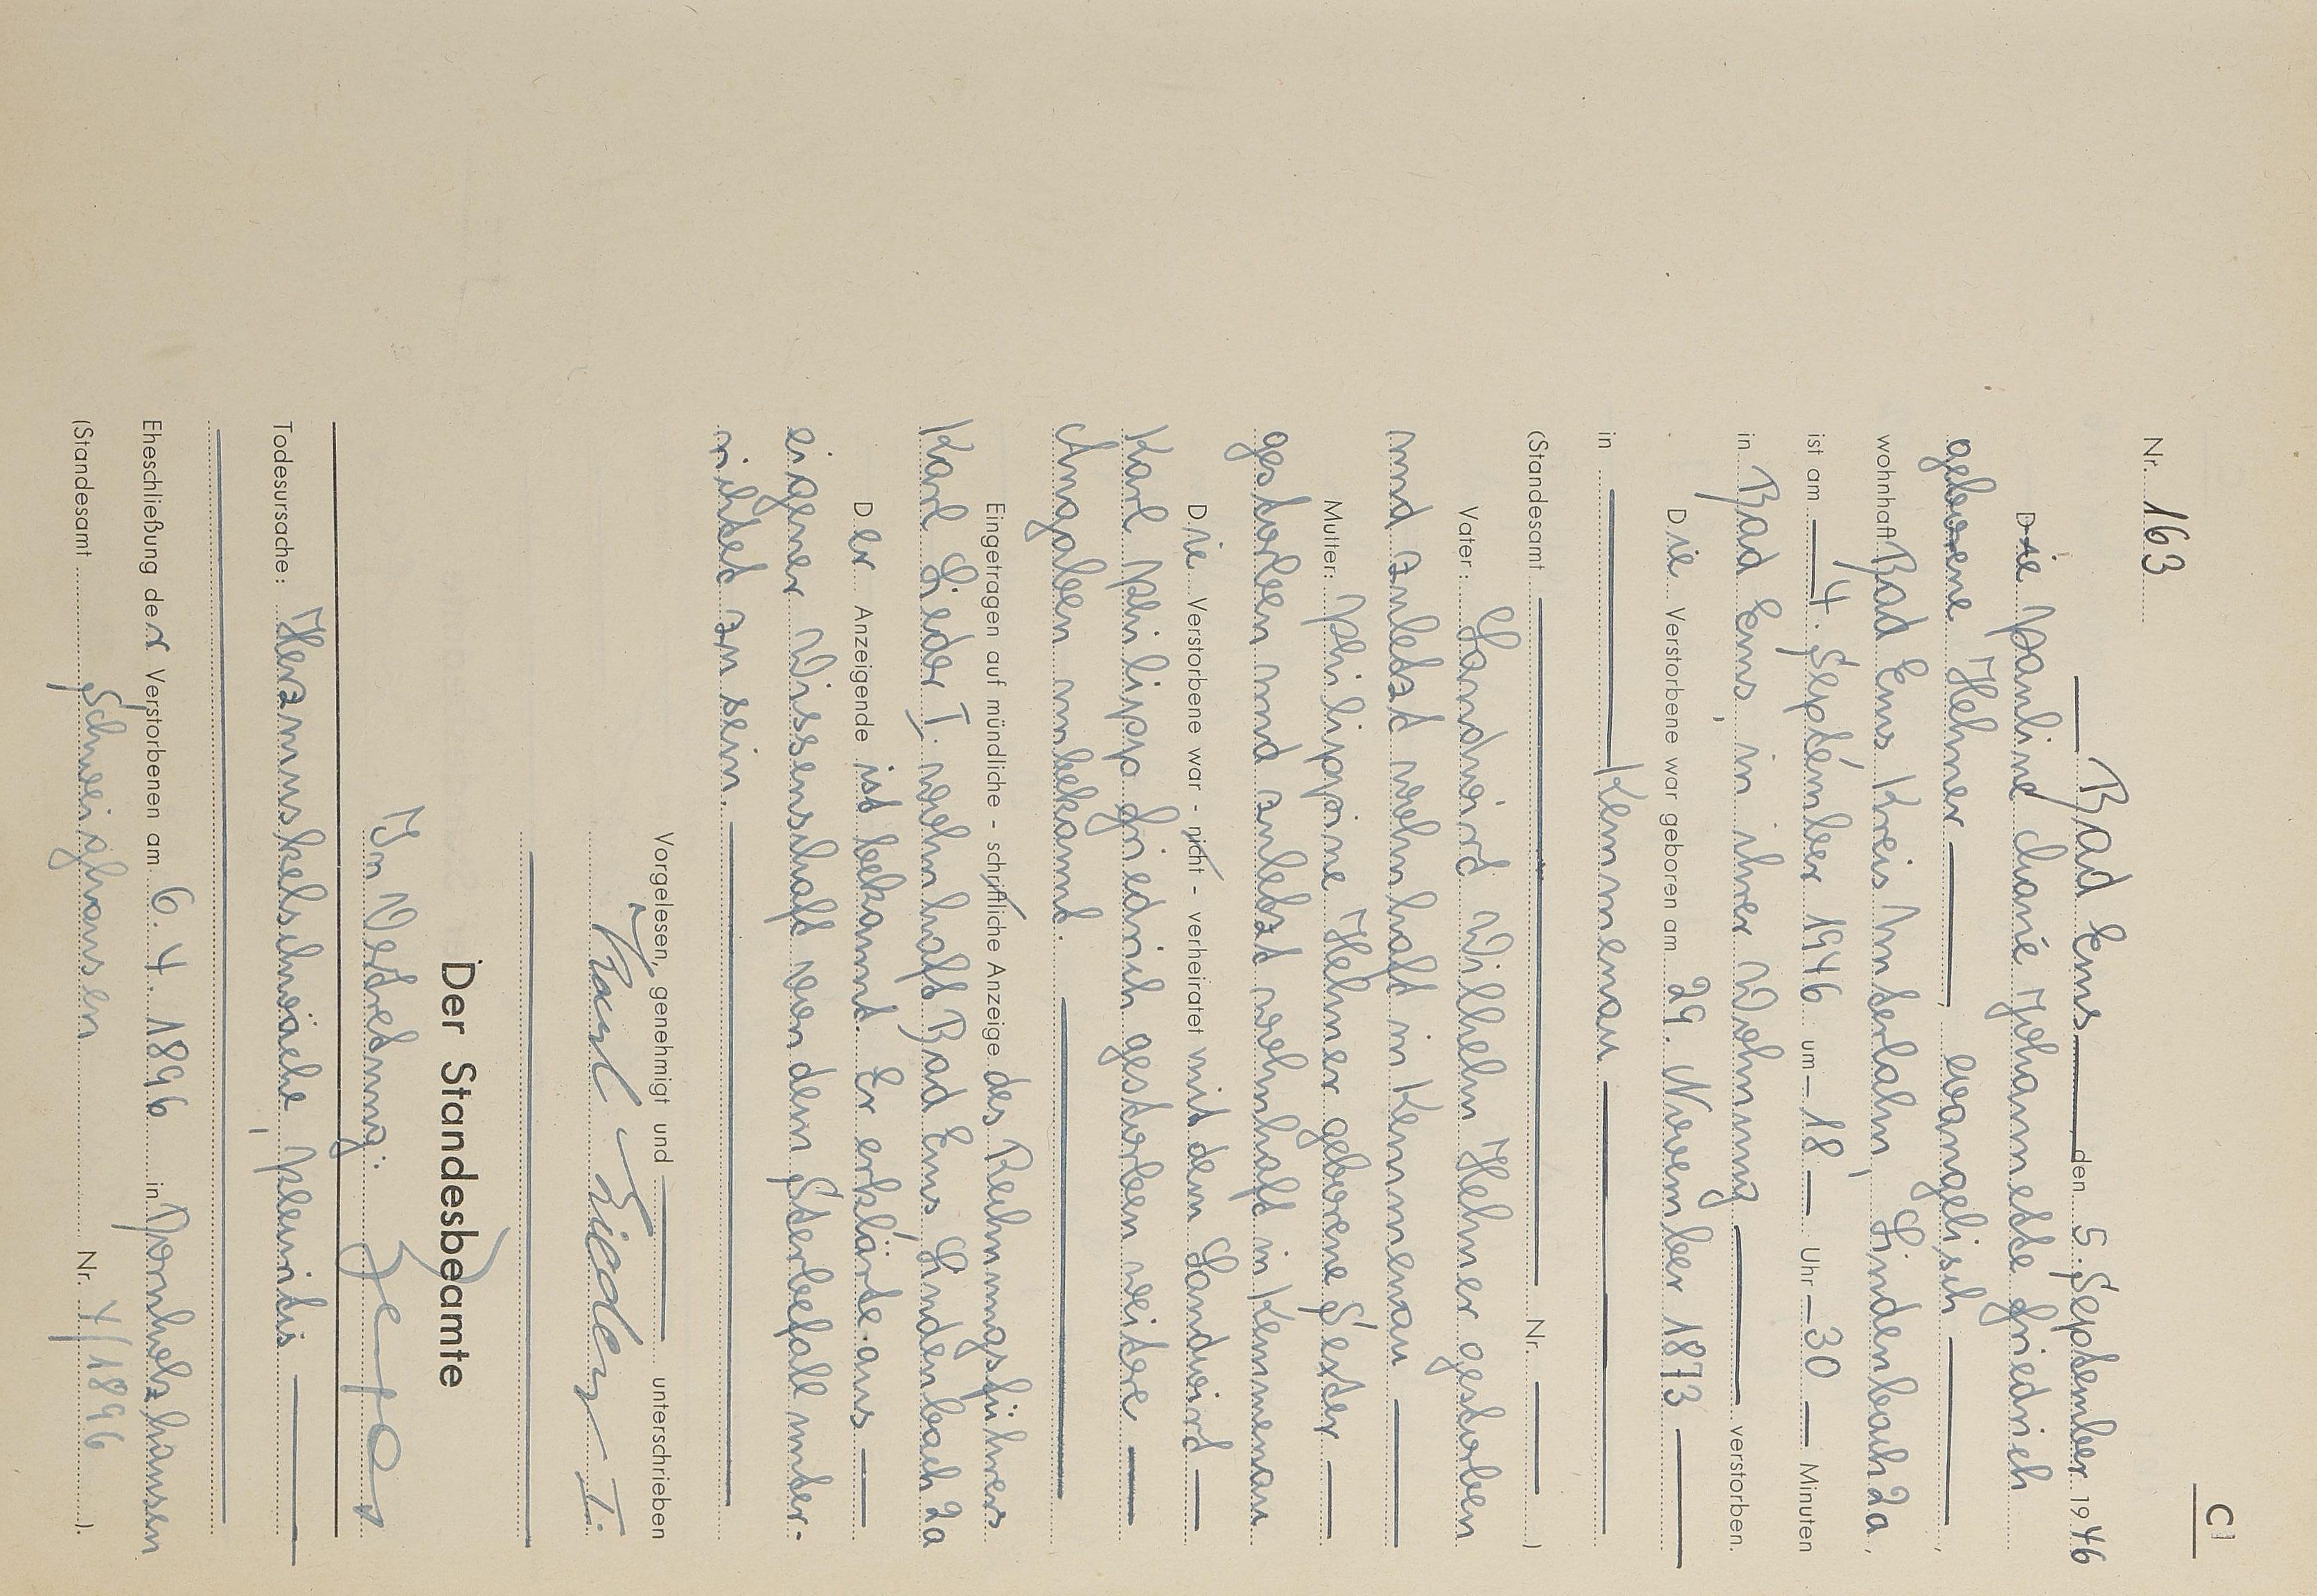 C1
Nr. 163
Bad Ems den 5. September 1946
Die Pauline Johannette Friedrich
geborene Hehner, evangelisch,
wohnhaft Bad Ems Kreis Unterlahn, Lindenbach 2a,
ist am 4. September 1946 um 18 Uhr 30 Minuten
in Bad Ems, in ihrer Wohnung verstorben.
Die Verstorbene war geboren am 29. November 1873
in Kemmenau
(Standesamt Nr. )
Vater: Landwirt Wilhelm Hehner gestorben
und zuletzt wohnhaft in Kemmenau
Mutter: Philippine Hehner geborene Sexter
gestorben und zuletzt wohnhaft in Kemmenau
Die Verstorbene war - nicht - verheiratet mit dem Landwirt
Karl Philipp Friedrich gestorben weitere
Angaben unbekannt.
Eingetragen auf mündliche - schriftliche Anzeige des Rechnungsführers
Karl Lieder I. wohnhaft Bad Ems, Lindenbach 2a
Der Anzeigende ist bekannt. Er erklärte aus
eigener Wissenschaft von dem Sterbefall unter-
richtet zu sein.
Vorgelesen, genehmigt und unterschrieben
Karl Lieder I.
Der Standesbeamte
In Vertretung:
Todesursache: Herzmuskelschwäche, Pleuritis
Eheschließung der Verstorbenen am 6. 4. 1896 in Dornholzhausen
(Standesamt Schweighausen Nr. 4/1896 ).